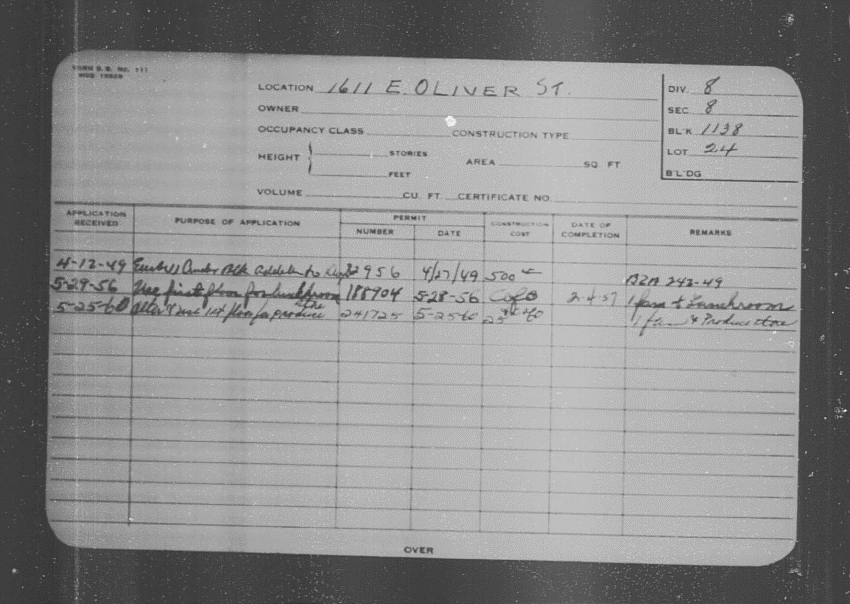 FORM B. B. No. 111
LOCATION 1611 E. OLIVER ST.
DIV. 8
OWNER
SEC 8
OCCUPANCY CLASS CONSTRUCTION TYPE
BL'K 1138
HEIGHT STORIES AREA SQ. FT
LOT 24
FEET
B'L'DG
VOLUME CU. FT. CERTIFICATE NO.
APPLICATION RECEIVED PURPOSE OF APPLICATION PERMIT NUMBER DATE CONSTRUCTION COST DATE OF COMPLETION REMARKS
4-12-49 Cinder Blk addition to 956 4/27/49 500 BZA 242-49
5-29-56 Use first floor for lunchroom 188904 5-28-56 C of O 2-4-57 1 fam & Lunchroom
5-25-60 Alter & use 1st floor for produce store 241725 5-25-60 25 1 fam & Produce store
OVER